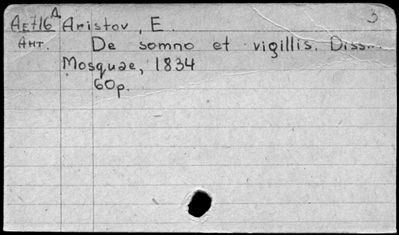 3
Ает16 Д Aristov, E.
Ант. De somno et vigillis. Diss.
Mosquae, 1834
60p.